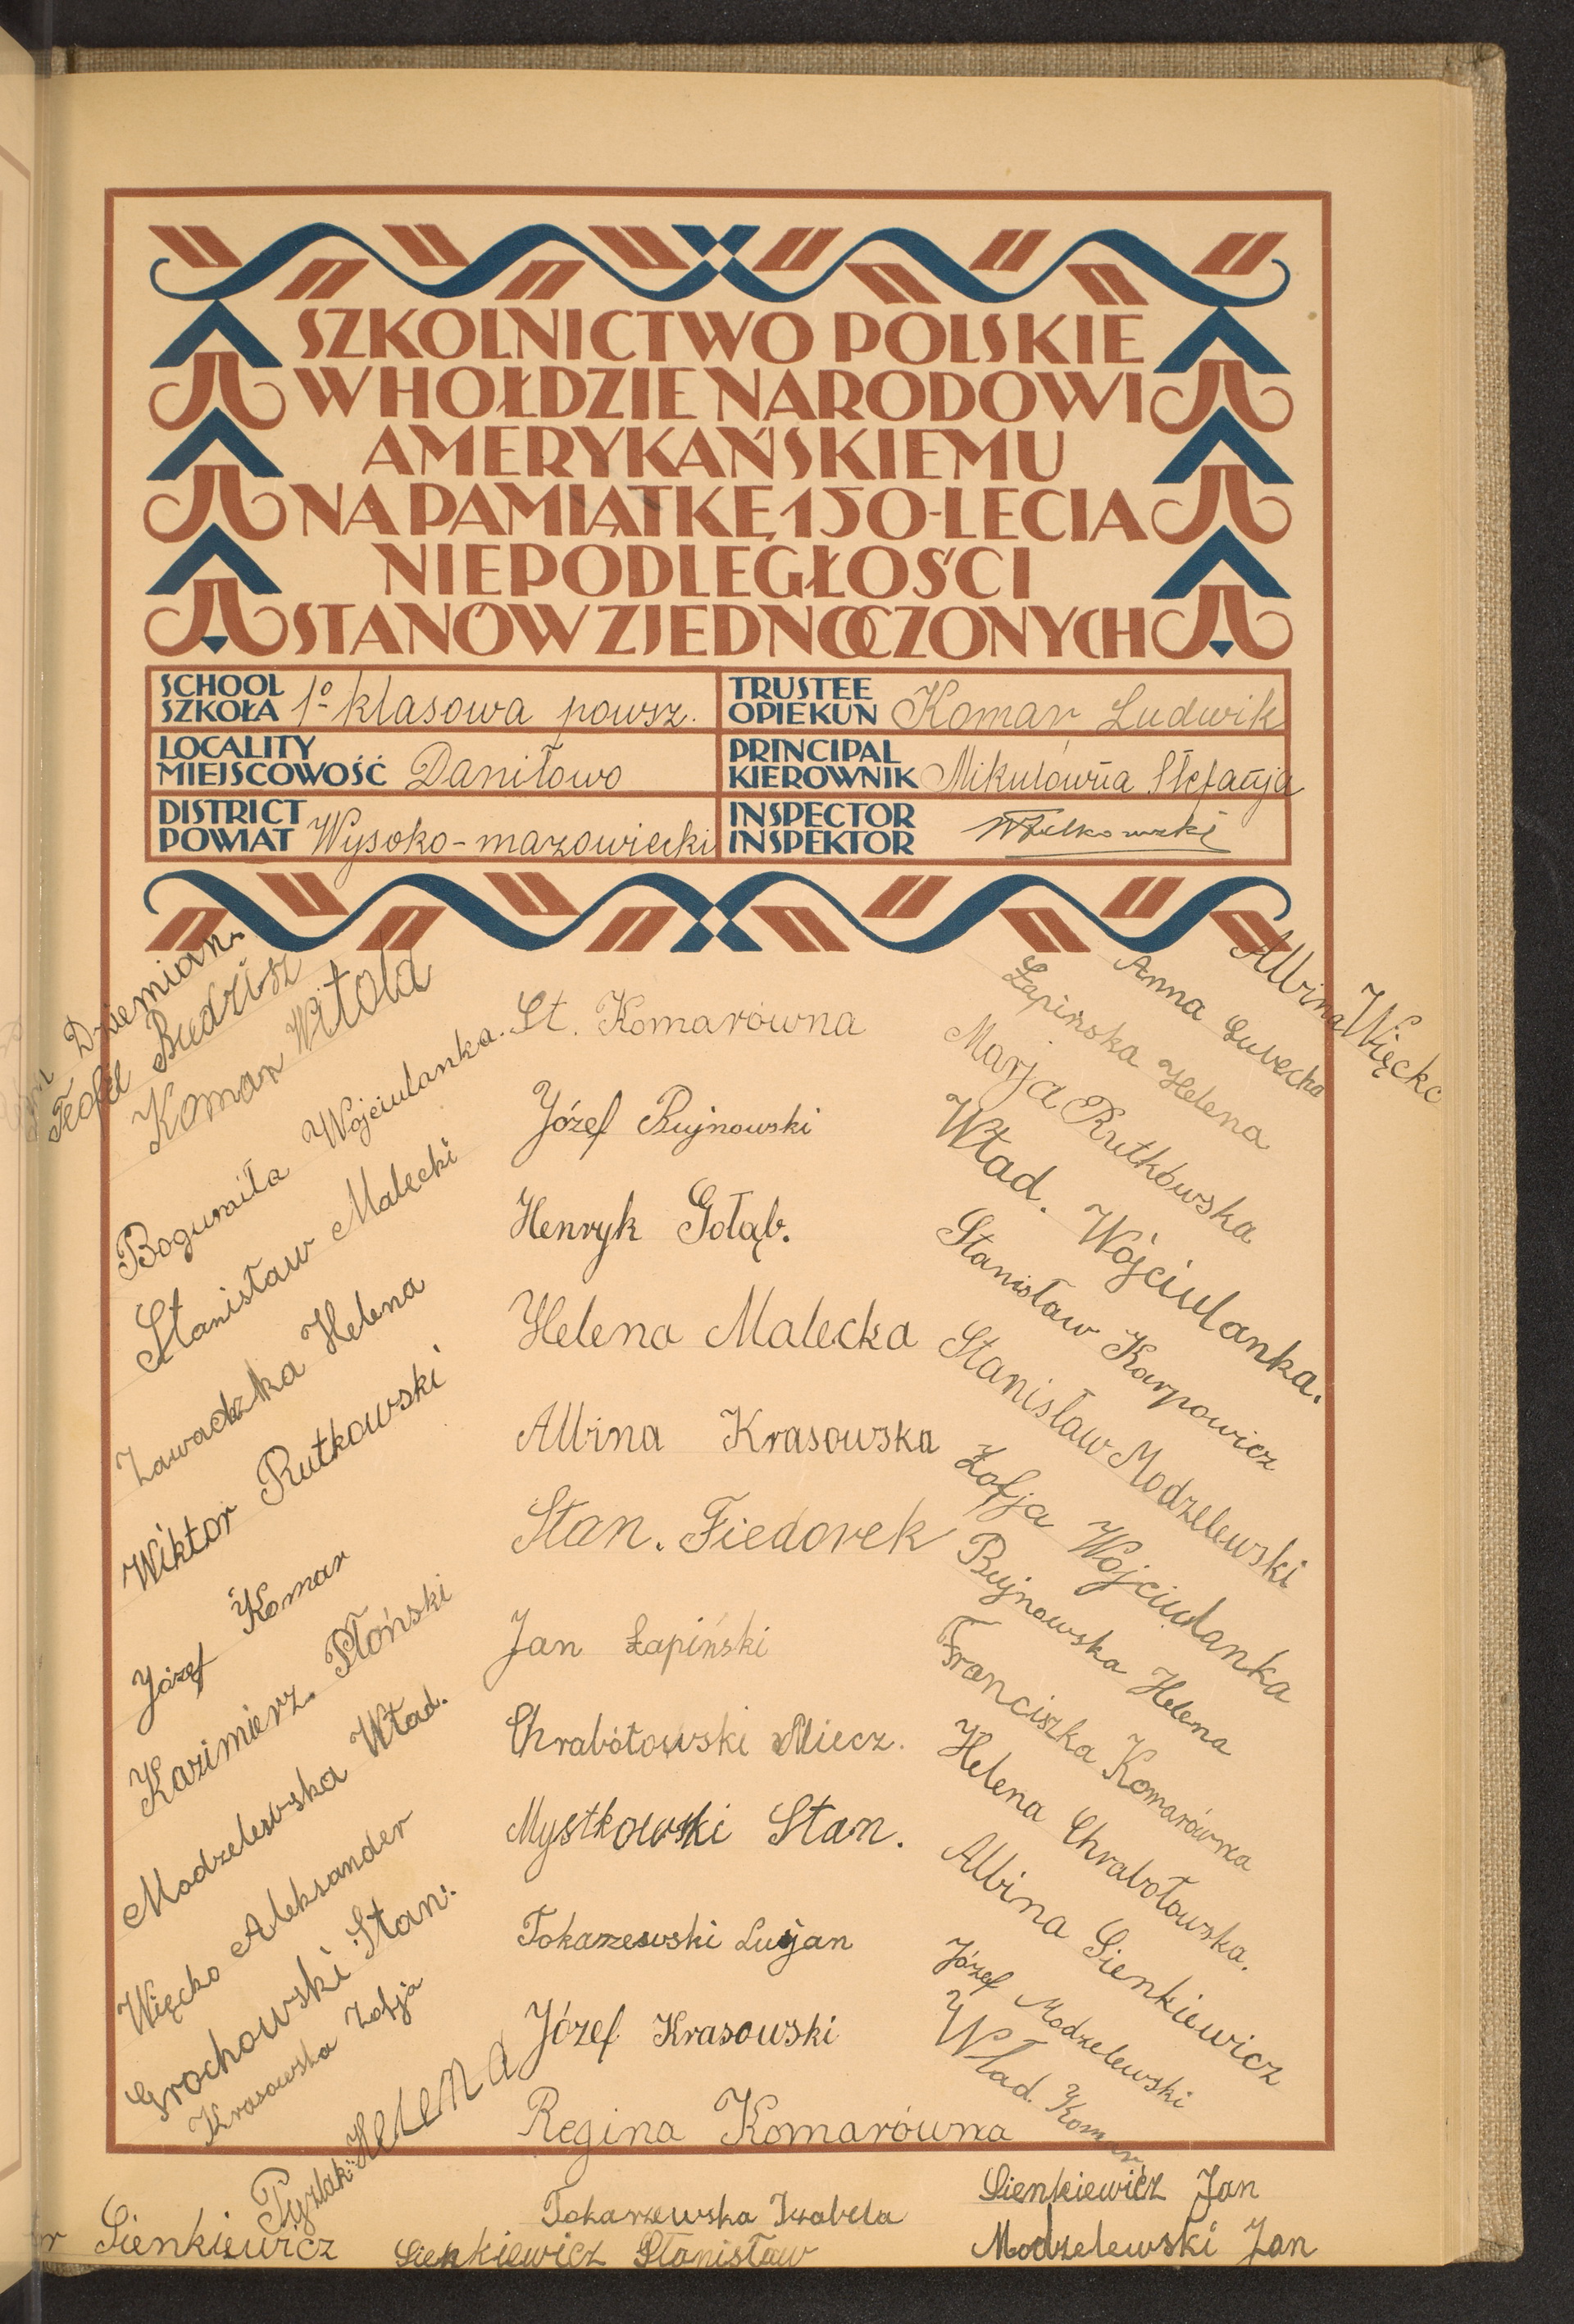 SZKOLNICTWO POLSKIE
W HOŁDZIE NARODOWI
AMERYKAŃSKIEMU
NA PAMIĄTKĘ 150-LECIA
NIEPODLEGŁOŚCI
STANÓW ZJEDNOCZONYCH
SCHOOL
SZKOŁA 1º klasowa powsz.
TRUSTEE
OPIEKUN Komar Ludwik
LOCALITY
MIEJSCOWOŚĆ Daniłowo
PRINCIPAL
KIEROWNIK Mikulówna Stefanja
DISTRICT
POWIAT Wysoko-mazowiecki
INSPECTOR
INSPEKTOR
Dziemian.
Teofil Budzisz
Komar Witold
Bogumiła Wojciulanka.
Stanisław Malecki
Zawadzka Helena
Wiktor Rutkowski
Józef Komar
Kazimierz Płoński
Modzelewska Wład.
Więcko Aleksander
Grochowski Stan.
Krasowska Zofja
Pyzlak Helena
Sienkiewicz
St. Komarówna
Józef Bujnowski
Henryk Gołąb.
Helena Malecka
Albina Krasowska
Stan. Fiedorek
Jan Łapiński
Chrabołowski Miecz.
Mystkowski Stan.
Tokarzewski Lucjan
Józef Krasowski
Regina Komarówna
Tokarzewska Izabela
Sienkiewicz Stanisław
Albina Więcko
Anna Lubecka
Łapińska Helena
Marja Rutkowska
Wład. Wójciulanka.
Stanisław Karpowicz
Stanisław Modzelewski
Zofja Wojciulanka
Bujnowska Helena
Franciszka Komarówna
Helena Chrabołowska.
Albina Sienkiewicz
Józef Modzelewski
Wład. Komar
Sienkiewicz Jan
Modzelewski Jan